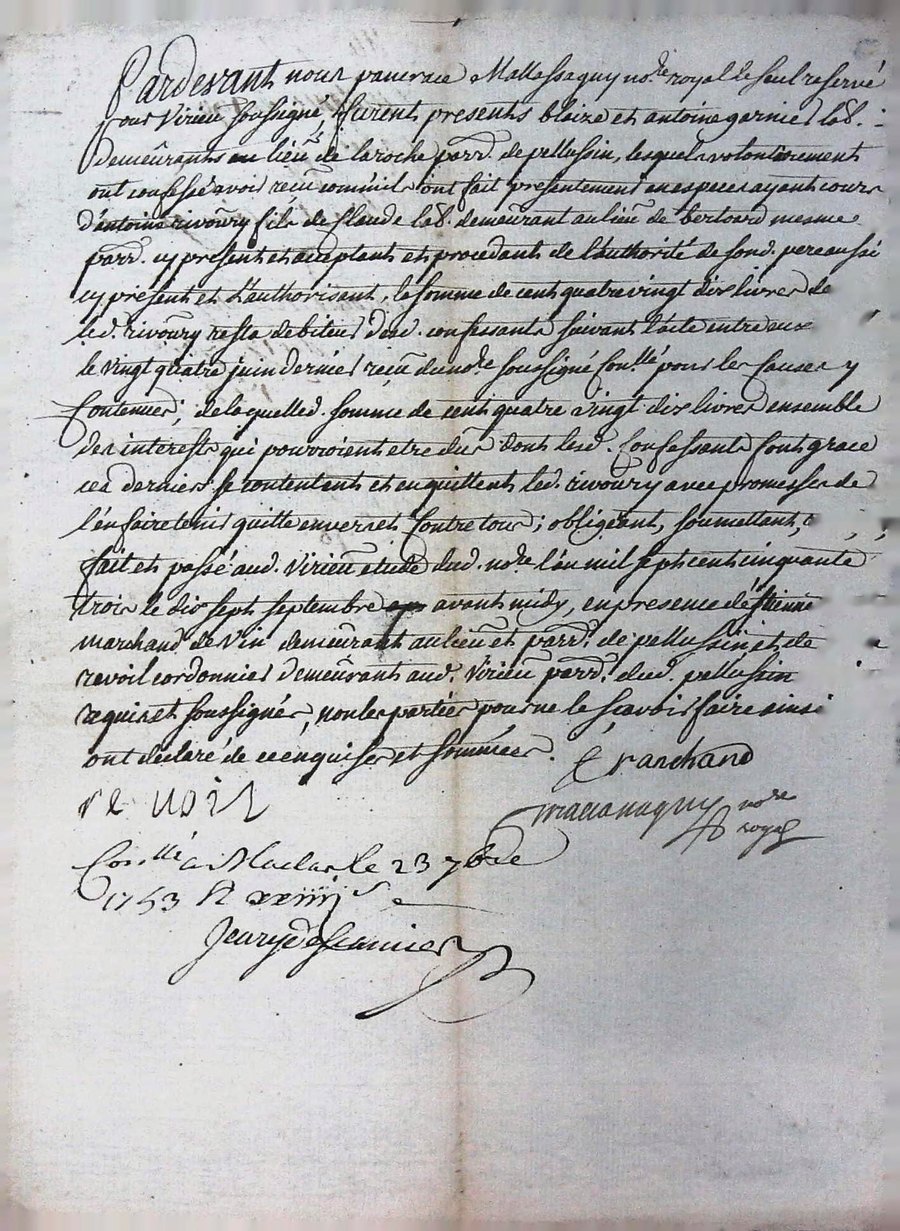 Pardevant nous pancrace Mallassaguy no.re royal le seul reservé
pour Virieu soussigné furent presents blaize et antoine garnier lab.
demeûrants au lieu de la roche parr.e de pellussin, lesquels volontairement
ont confessé avoir reçu comm'ils ont fait presentement en especes ayant cours
d'antoine rivoiry fils de Claude lab. demeurant au lieu de bertoard mesme
parr.e cy present et acceptant et procedant de l'authorité de sond. pere aussi
cy present et l'authorisant, la somme de cent quatre vingt dix livres de
led. rivoiry reste debiteur dusd. confessants suivant l'acte entre eux
le vingt quatre juin dernier reçu du no.re soussigné Con.llé pour les Causes y
Contenues; de laquelled. somme de cent quatre vingt dix livres ensemble
des interests qui pourroient etre dus dont lesd. Confessants font grace
ces derniers se contentent et en quittent led. rivoiry avec promesses de
l'en faire tenir quitte envers et Contre tous; obligeant, soumettant,
fait et passé aud. Virieu etude dud. no.re l'an mil sept cent cinquante
trois le dix sept septembre avant midy, en presence d'étienne
marchand de vin demeurant au lieu et parr.e de pellussin, et de
revoil cordonnier demeûrant aud. Virieu parr.e dud. pellussin
requis et soussignés, non les parties pour ne le scavoir faire ainsi
ont declaré de ce enquises et sommées.
E marchand
revoil
no.re
royal
Con.llé a Maclas le 23 7bre
1753 R xxiiij s